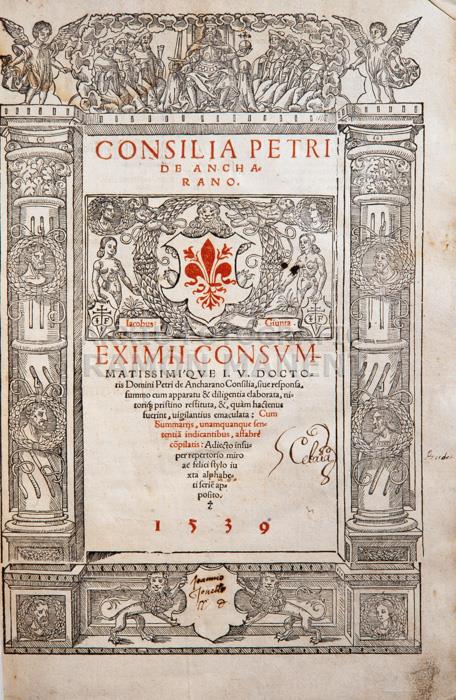 CONSILIA PETRI
DE ANCHA-
RANO.
Iacobus Giunta.
EXIMII CONSVM-
MATISSIMI'QVE I. V. DOCTO-
ris Domini Petri de Ancharano Consilia, siue responsa,
summo cum apparatu & diligentia elaborata, ni-
toriq; pristino restituta, &, quàm hactenus
fuerint, uigilantius emaculata: Cum
Summarijs, unamquanque sen-
tentiã indicantibus, affabrè
cõpilatis: Adiecto insu-
per repertorio miro
ac felici stylo iu
xta alphabe-
ti seriẽ ap-
posito.
1539